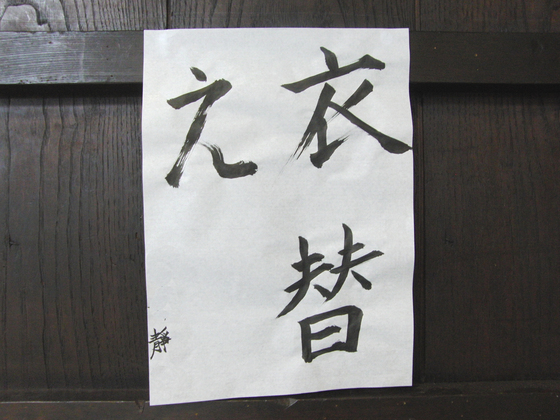 衣替
え
静